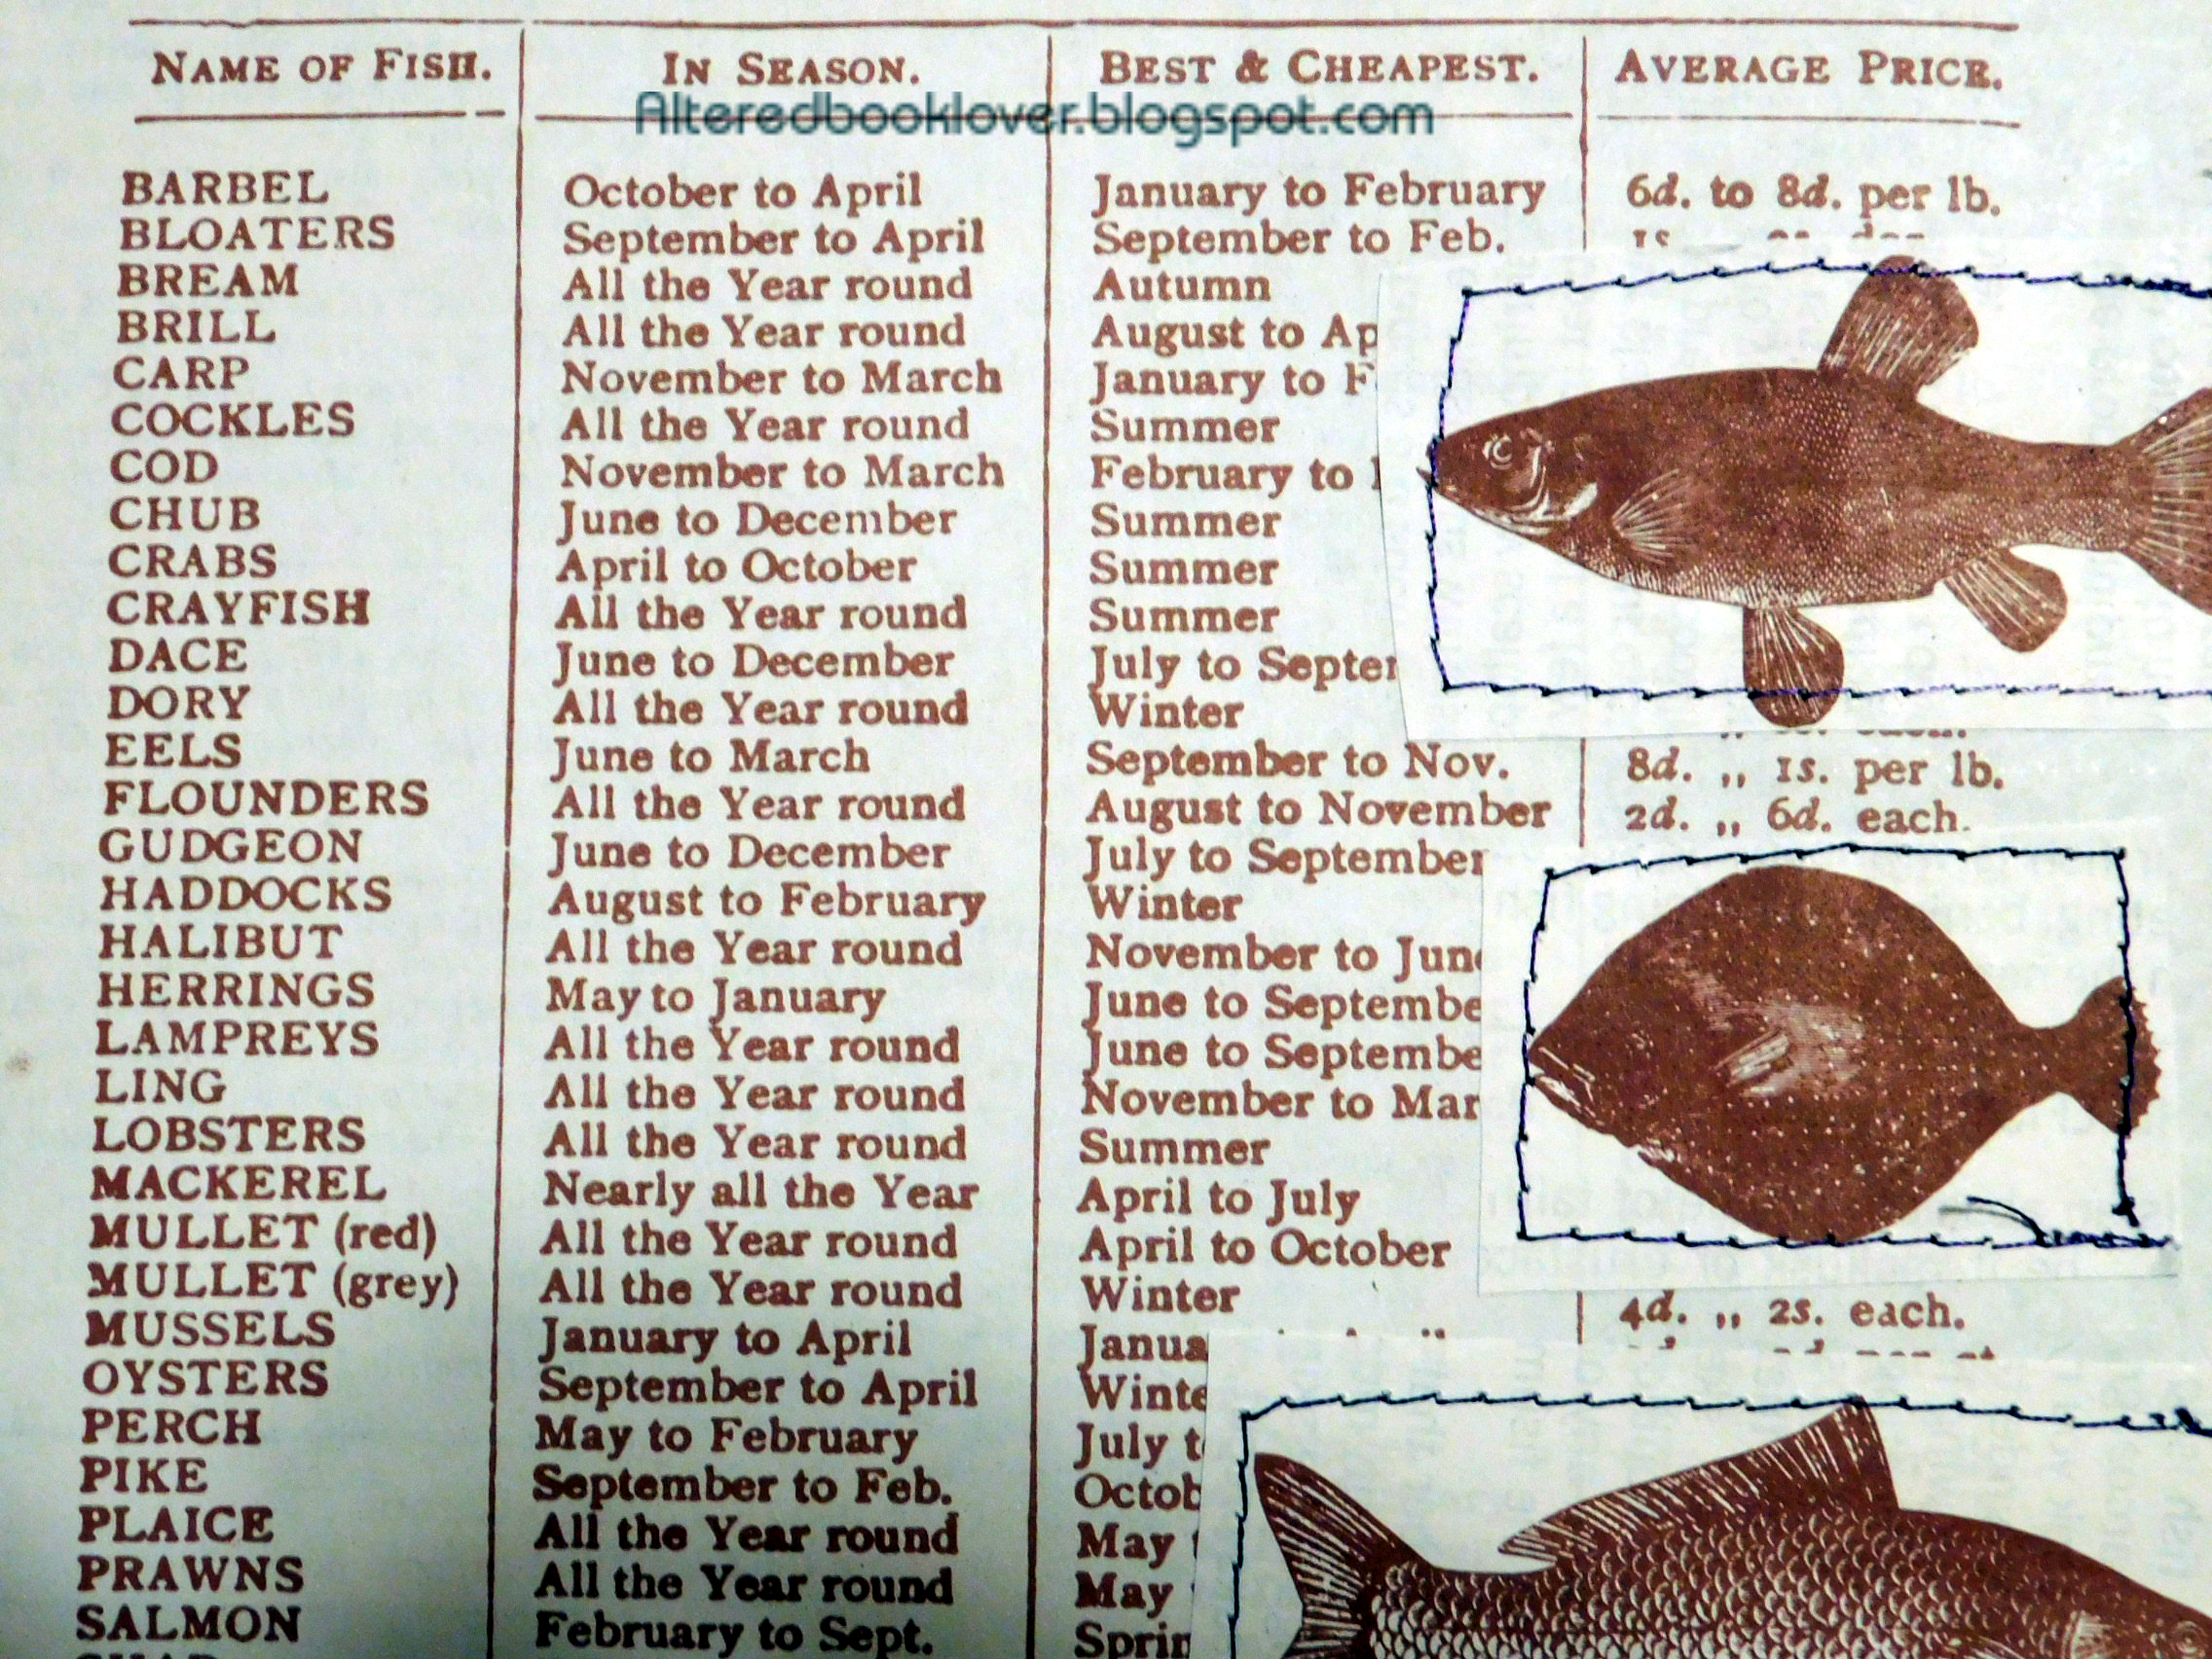 NAME OF FISH. IN SEASON. BEST & CHEAPEST. AVERAGE PRICE.
Alteredbooklover.blogspot.com
BARBEL October to April January to February 6d. to 8d. per lb.
BLOATERS September to April September to Feb.
BREAM All the Year round Autumn
BRILL All the Year round August to Ap
CARP November to March January to F
COCKLES All the Year round Summer
COD November to March February to
CHUB June to December Summer
CRABS April to October Summer
CRAYFISH All the Year round Summer
DACE June to December July to Septe
DORY All the Year round Winter
EELS June to March September to Nov. 8d. ,, 1s. per lb.
FLOUNDERS All the Year round August to November 2d. ,, 6d. each.
GUDGEON June to December July to September
HADDOCKS August to February Winter
HALIBUT All the Year round November to June
HERRINGS May to January June to Septembe
LAMPREYS All the Year round June to Septembe
LING All the Year round November to Mar
LOBSTERS All the Year round Summer
MACKEREL Nearly all the Year April to July
MULLET (red) All the Year round April to October
MULLET (grey) All the Year round Winter 4d. ,, 2s. each.
MUSSELS January to April Janua
OYSTERS September to April Winte
PERCH May to February July t
PIKE September to Feb. Octob
PLAICE All the Year round May
PRAWNS All the Year round May
SALMON February to Sept. Sprin